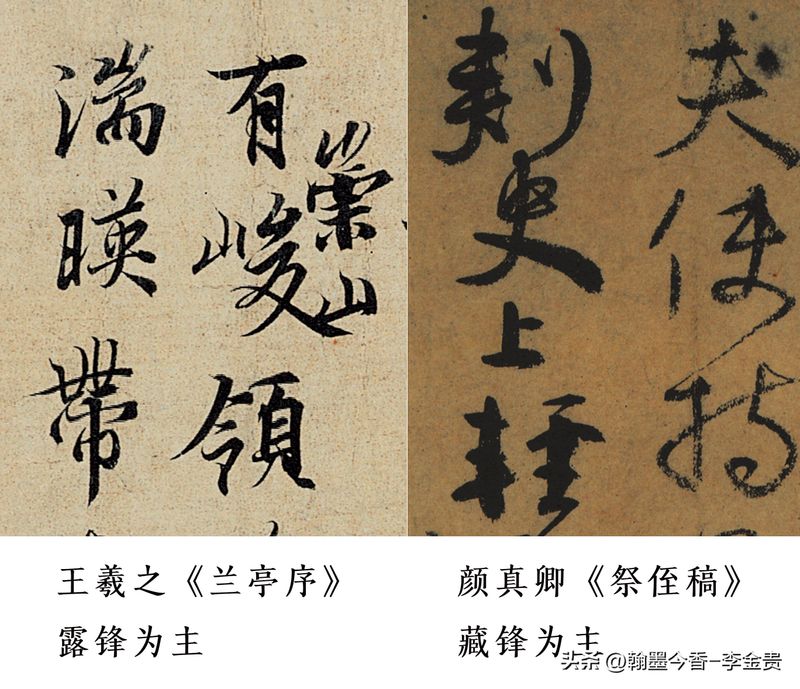 有崇山峻領
湍暎帶
夫使持
刺史上輕
王羲之《兰亭序》
露锋为主
颜真卿《祭侄稿》
藏锋为主
头条 @翰墨今香-李金贵